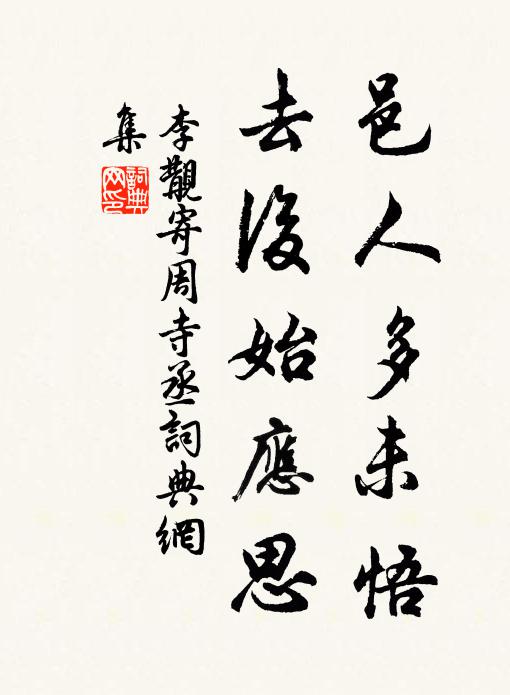 邑人多未悟
去後始應思
李觀寄周寺丞詞典網
集
詞典
网印